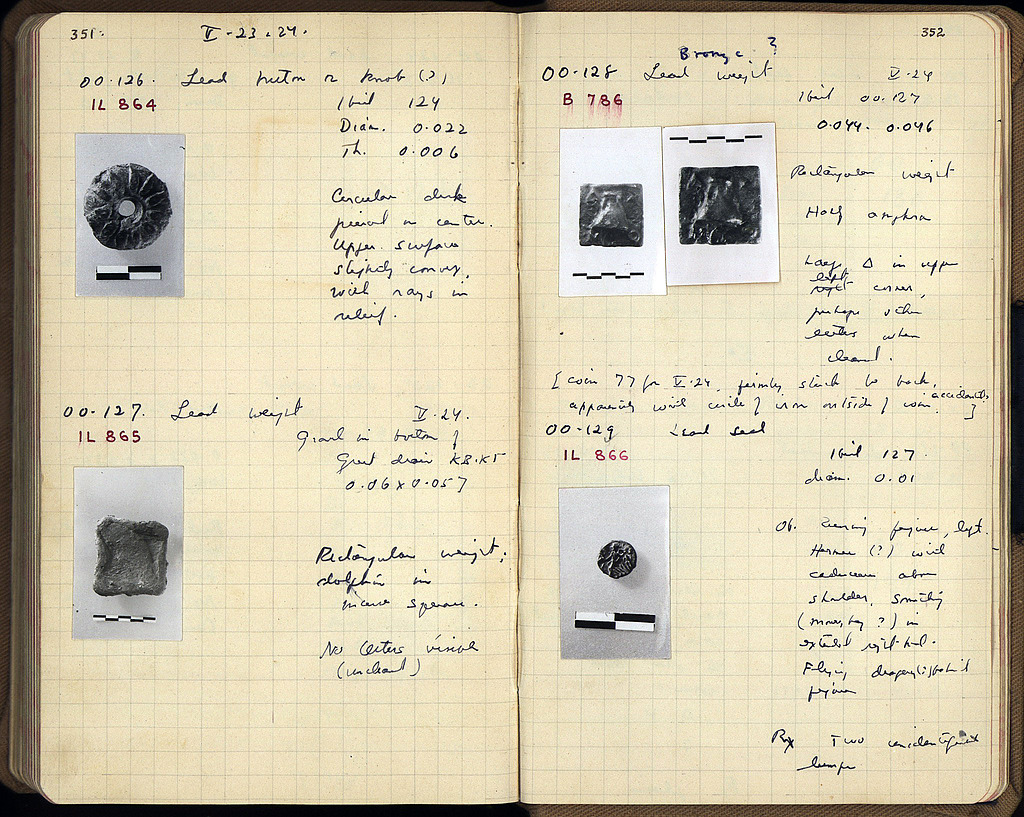 351.
V-23.24.
00-126. Lead button or knob (?)
IL 864
Ibid 124
Diam. 0.022
Th. 0.006
Circular disk
pierced in center.
Upper surface
slightly convex,
with rays in
relief.
00-127. Lead weight V-24.
IL 865
in bottom of
Great drain K8-K5
0.06 x 0.057
Rectangular weight,
dolphin in
incuse square.
No letters visible
(uncleaned)
352
Bronze ?
00-128 Lead weight V-24
B 786
Ibid 00-127
0.044. 0.046
Rectangular weight
Half amphora
Large Δ in upper
left
right corner,
perhaps other
letters when
cleaned.
[coin 77 for V-24, firmly stuck to back,
accidentally
apparently with circle of iron outside of coin. ]
00-129 Lead seal
IL 866
Ibid 127.
diam. 0.01
Ob. Running figure, left.
Hermes (?) with
caduceus above
shoulder, something
(money bag ?) in
extended right hand.
Flying drapery (?) behind
figure
Rx Two unidentified
lumps